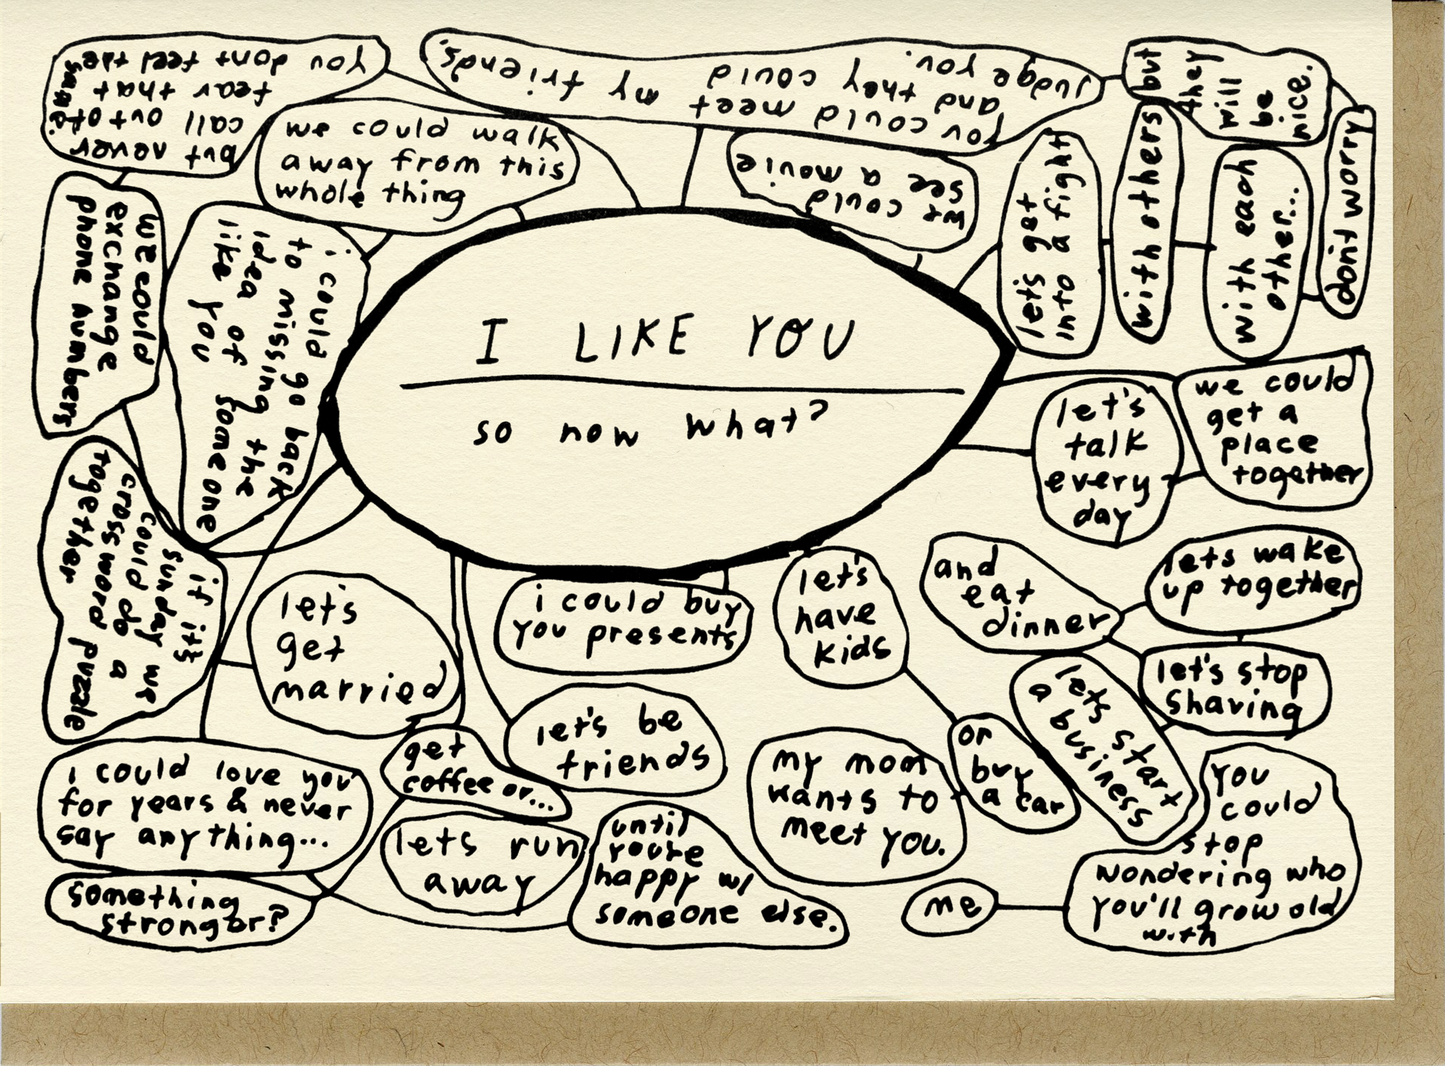 I LIKE YOU
so now what?
we could walk
away from this
whole thing
you could meet my friends,
and they could
judge you.
but
they
will
be
nice.
don't worry
we could
see a movie
let's get
into a fight
with others
with each
other...
we could
get a
place
together
let's
talk
every
day
lets wake
up together
let's stop
shaving
and
eat
dinner
let's start
a business
let's
have
kids
or
buy
a car
my mom
wants to
meet you.
you
could
stop
wondering who
you'll grow old
with
me
i could buy
you presents
let's be
friends
get
coffee or...
something
stronger?
lets run
away
let's
get
married
i could love you
for years & never
say anything...
until
you're
happy w/
someone else.
if it's
sunday we
could do a
crossword puzzle
together
i could go back
to missing the
idea of someone
like you
we could
exchange
phone numbers
but never
call out of
fear that
you dont feel the
same.